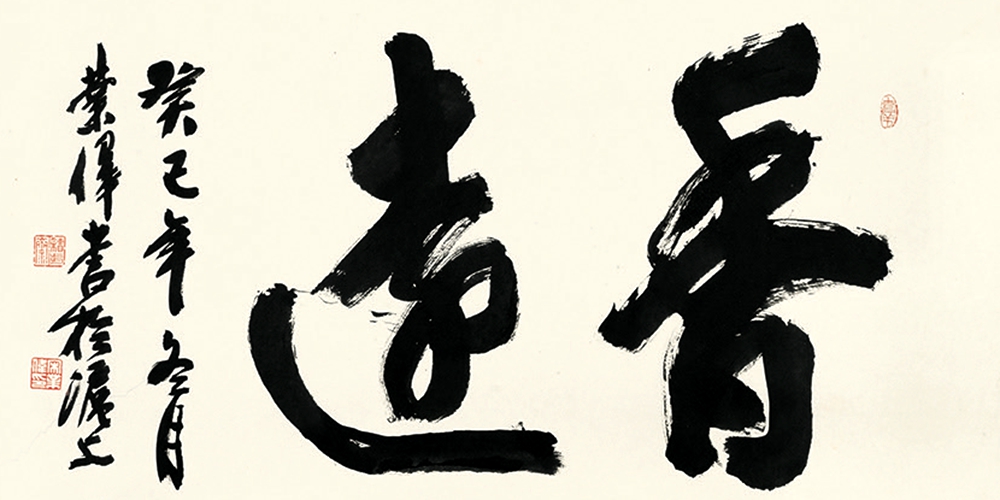 香遠
癸巳年冬月
業偉書於滬上